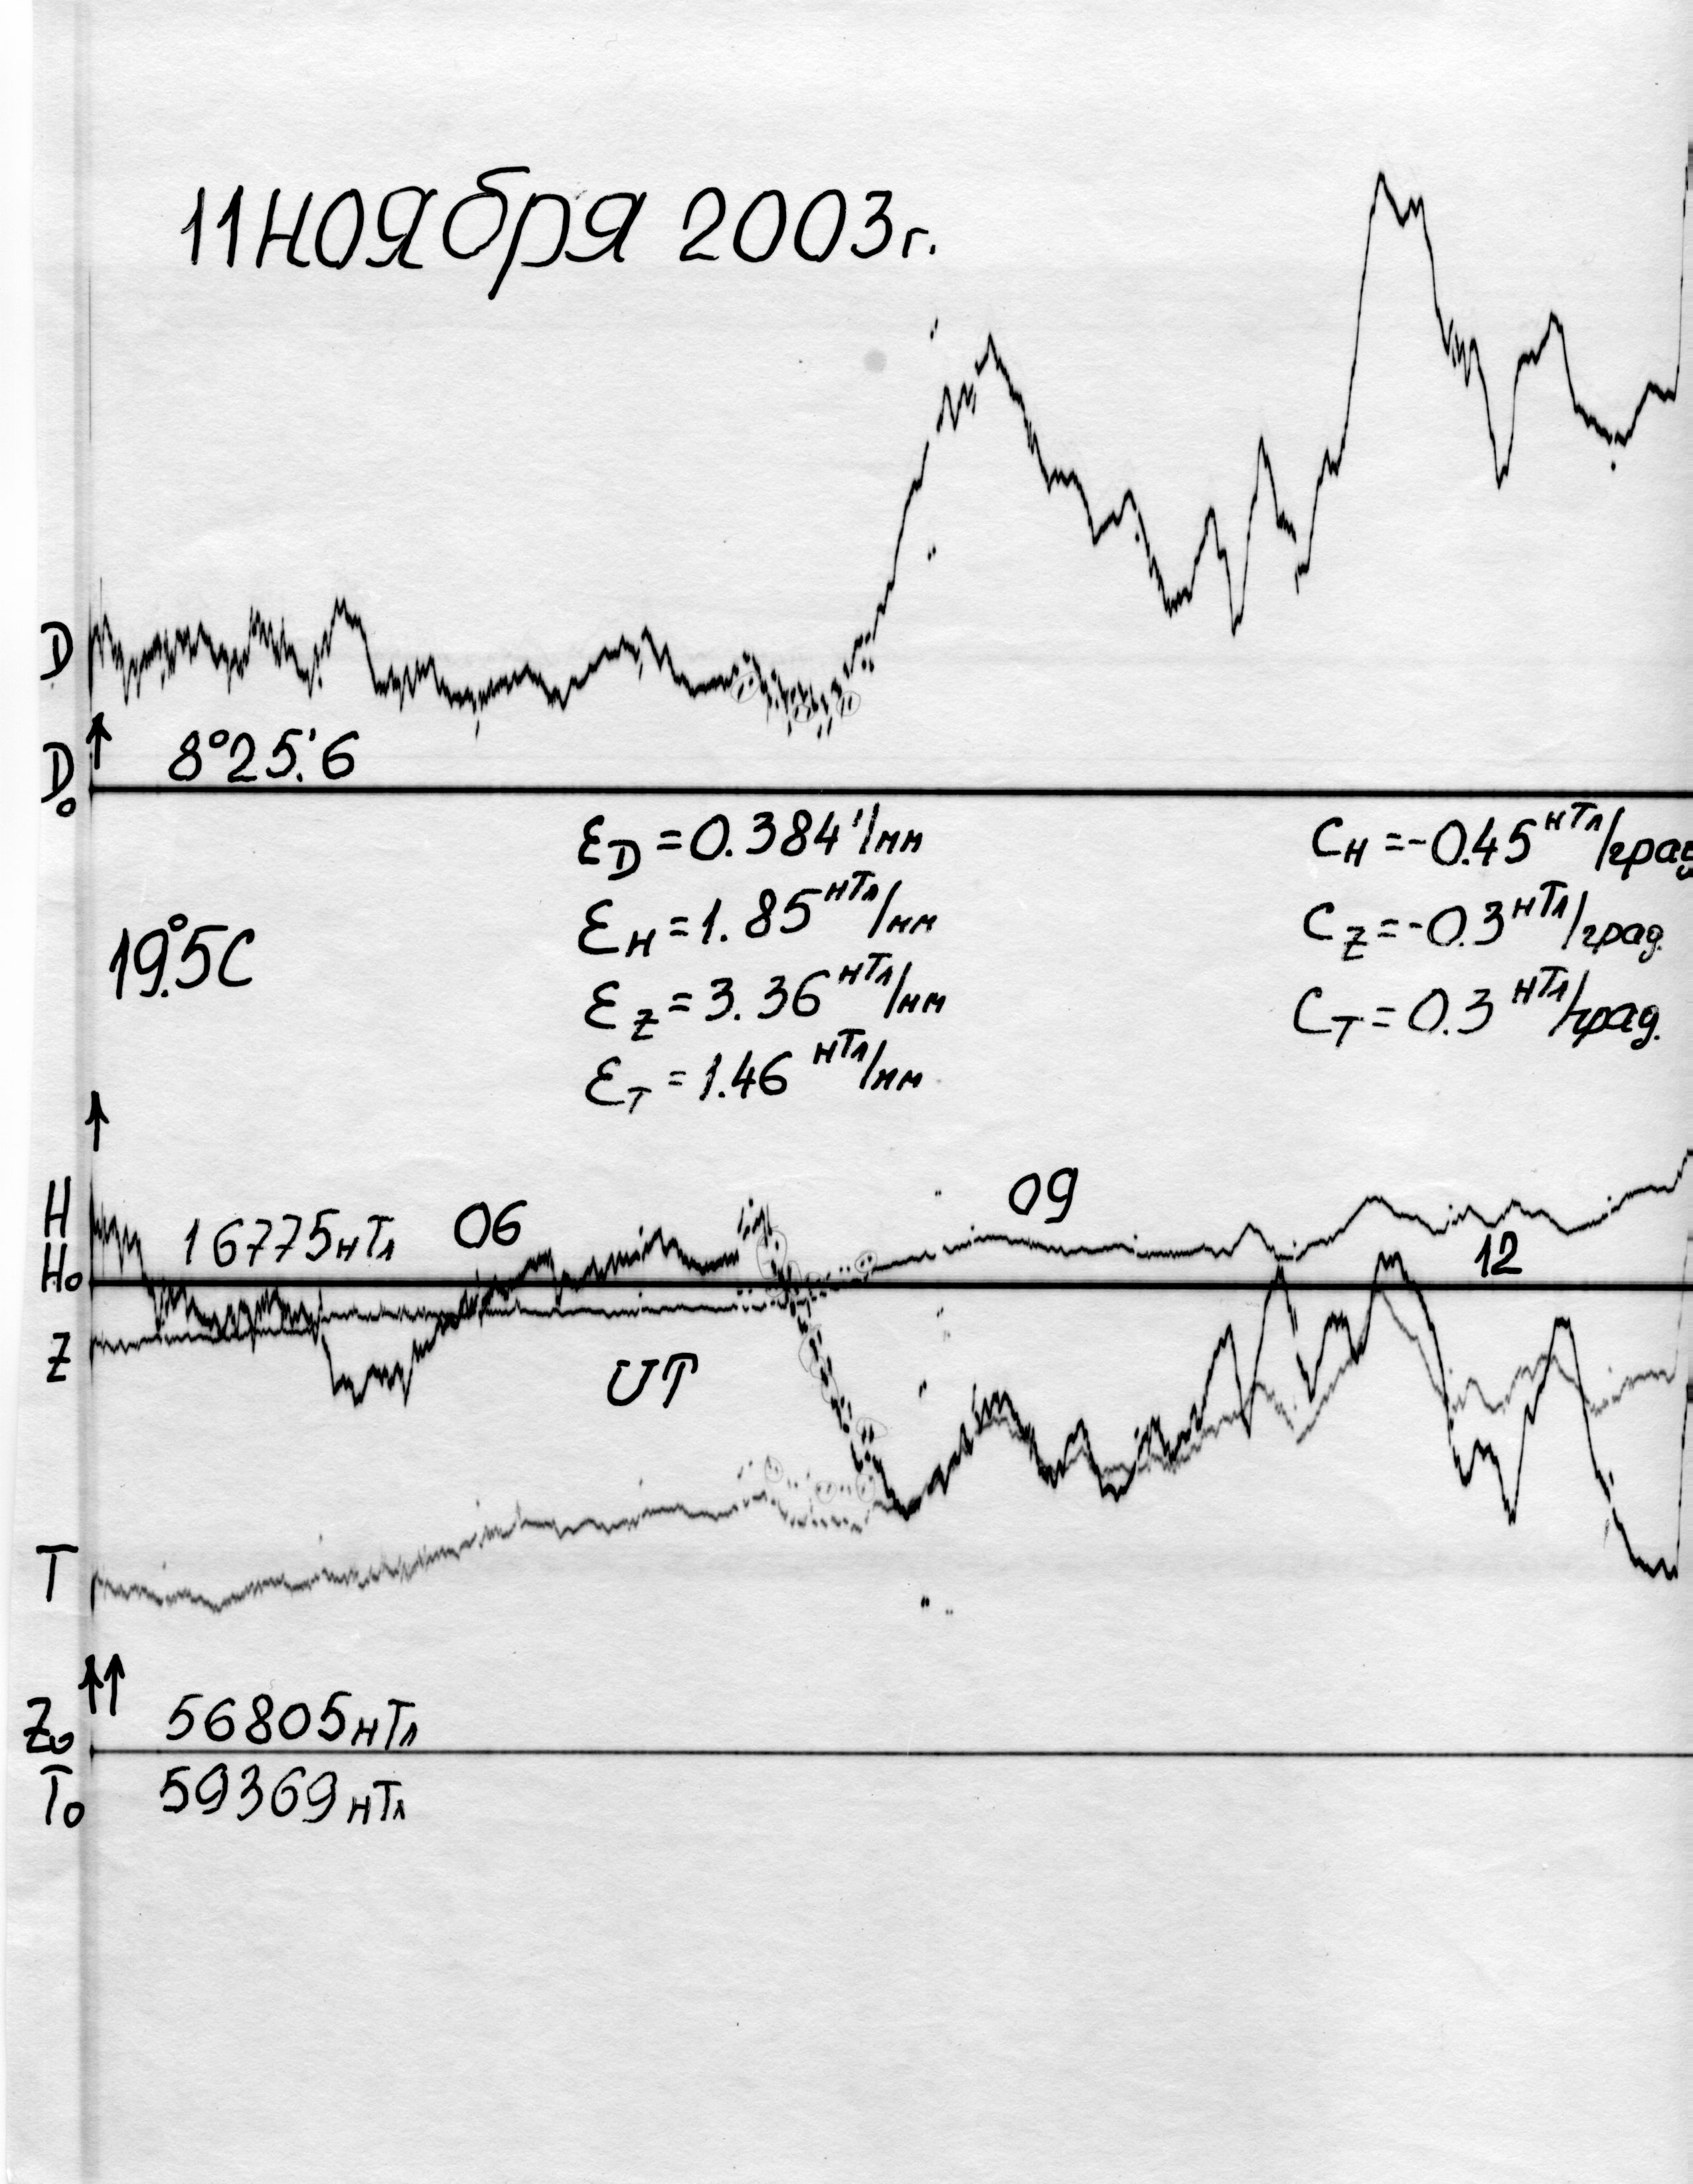 11 ноября 2003г.
D
D₀ 8°25.'6
ε_D = 0.384 '/мм
C_H = -0.45 нТл/град
ε_H = 1.85 нТл/мм
C_Z = -0.3 нТл/град.
19.°5C
ε_Z = 3.36 нТл/мм
C_T = 0.3 нТл/град.
ε_T = 1.46 нТл/мм
09
H 16775нТл 06
H₀ 12
Z
UT
T
Z₀ 56805нТл
T₀ 59369нТл